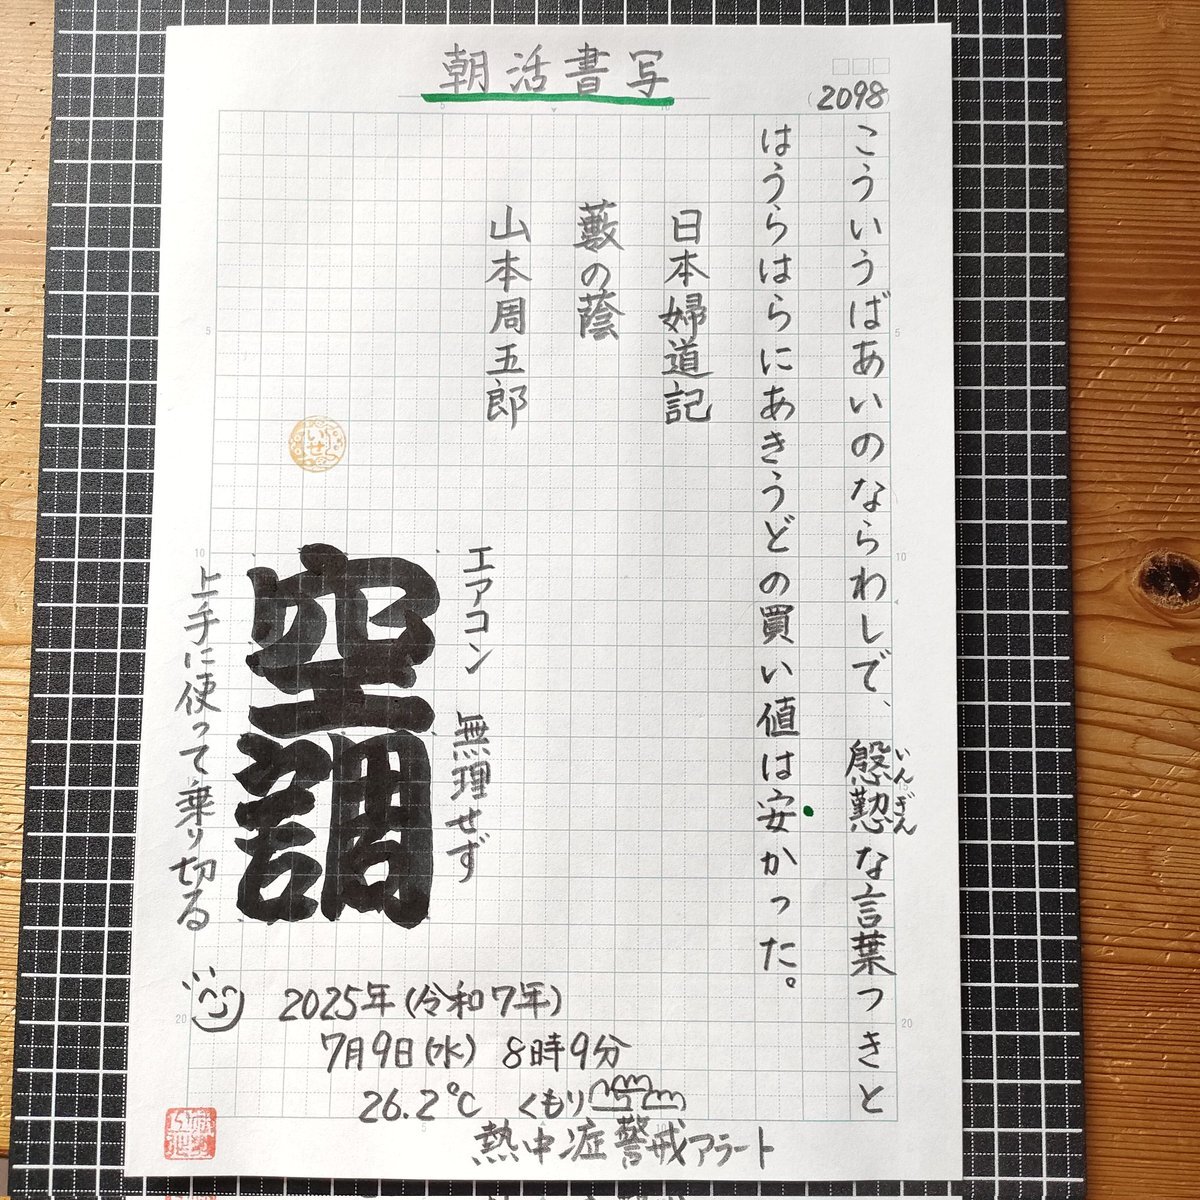 朝活書写
2098
こういうばあいのならわしで、慇懃な言葉つきと
いんぎん
はうらはらにあきうどの買い値は安かった。
日本婦道記
藪の蔭
山本周五郎
エアコン 無理せず
空調
上手に使って乗り切る
2025年(令和7年)
7月9日(水) 8時9分
26.2℃ くもり
熱中症警戒アラート